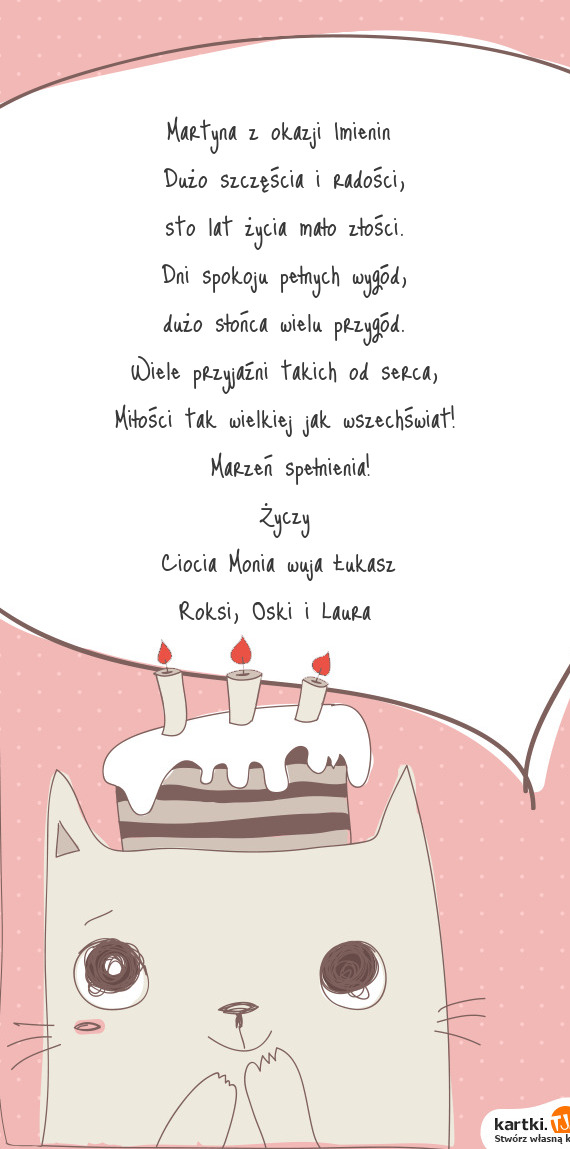 Martyna z okazji Imienin
Dużo szczęścia i radości,
sto lat życia mało złości.
Dni spokoju pełnych wygód,
dużo słońca wielu przygód.
Wiele przyjaźni takich od serca,
Miłości tak wielkiej jak wszechświat!
Marzeń spełnienia!
Życzy
Ciocia Monia wuja Łukasz
Roksi, Oski i Laura
kartki.TJ
Stwórz własną k